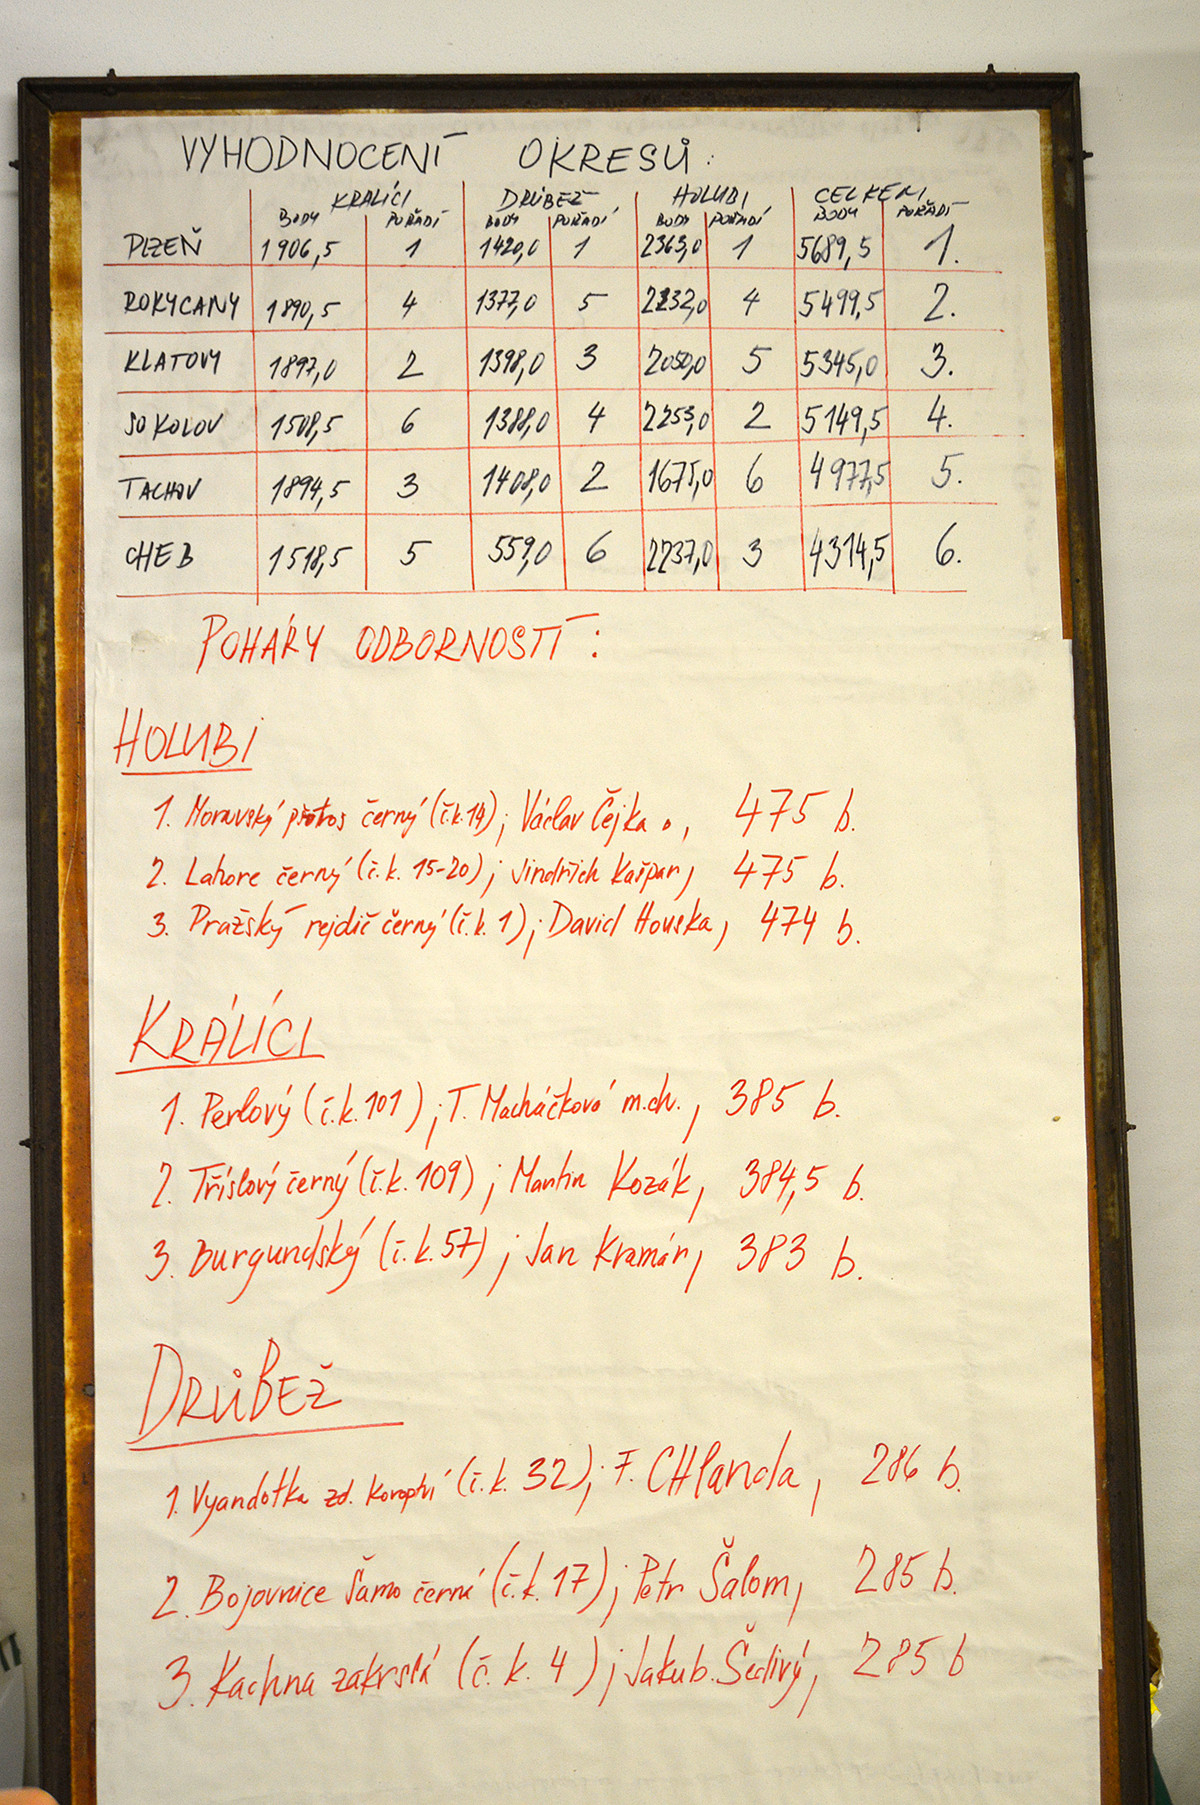 VYHODNOCENÍ OKRESŮ:
KRÁLÍCI DRŮBEŽ HOLUBI CELKEM
BODY POŘADÍ BODY POŘADÍ BODY POŘADÍ BODY POŘADÍ
PLZEŇ 1906,5 1 1420,0 1 2363,0 1 5689,5 1.
ROKYCANY 1890,5 4 1377,0 5 2232,0 4 5499,5 2.
KLATOVY 1897,0 2 1398,0 3 2050,0 5 5345,0 3.
SOKOLOV 1508,5 6 1388,0 4 2253,0 2 5149,5 4.
TACHOV 1894,5 3 1408,0 2 1675,0 6 4977,5 5.
CHEB 1518,5 5 559,0 6 2237,0 3 4314,5 6.
POHÁRY ODBORNOSTÍ:
HOLUBI
1. Moravský pštros černý (č.k.14); Václav Čejka, 475 b.
2. Lahore černý (č.k. 15-20); Jindřich Kašpar, 475 b.
3. Pražský rejdič černý (č.k. 1); David Houska, 474 b.
KRÁLÍCI
1. Perlový (č.k.101); T. Macháčková m.ch., 385 b.
2. Tříslový černý (č.k. 109); Martin Kozák, 384,5 b.
3. Burgundský (č.k.57); Jan Kramár, 383 b.
DRŮBEŽ
1. Vyandotka zd. koroptví (č.k. 32); F. CHlanda, 286 b.
2. Bojovnice Šamo černá (č.k. 17); Petr Šalom, 285 b.
3. Kachna zakrslá (č. k. 4); Jakub Šedivý, 285 b